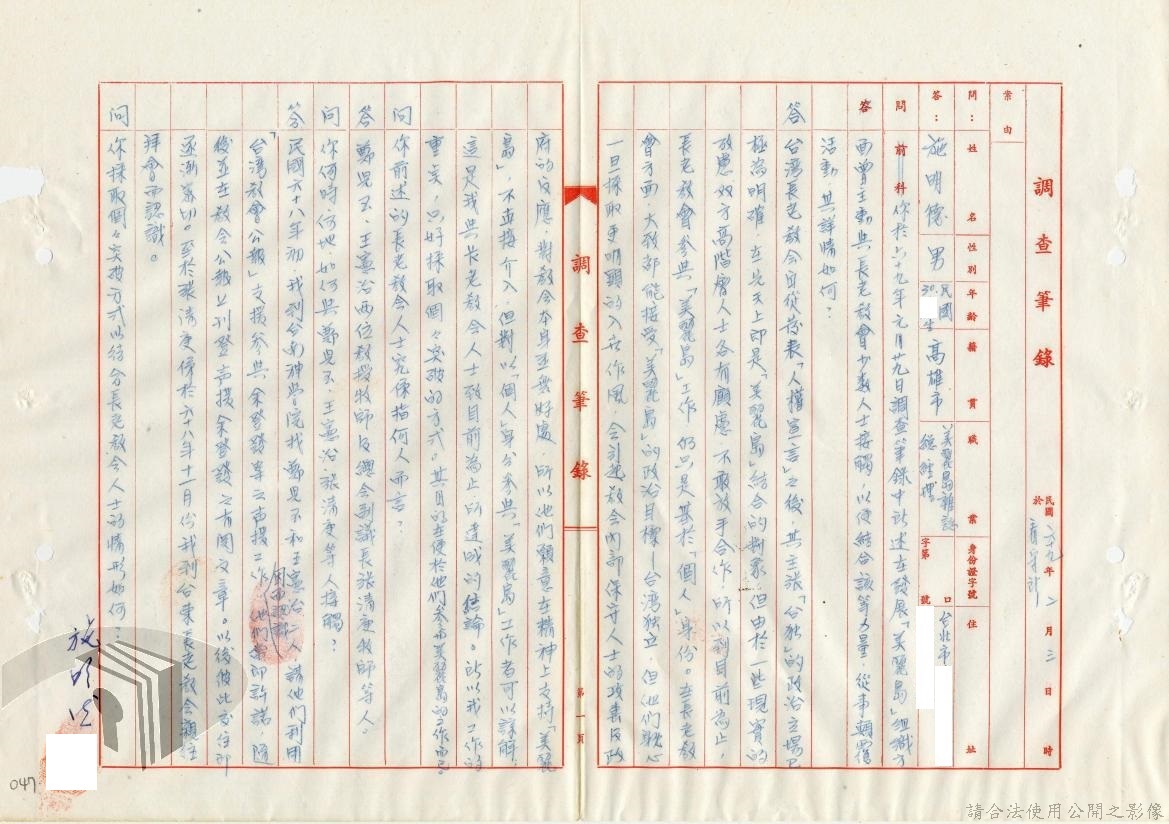 調查筆錄
民國六九年二月三日 時
於
案由
問：姓名 性別 年齡 籍貫 職業 身份證字號 住址
答：施明德 男 民國30 生 高雄市 美麗島雜誌總經理 字第 號 台北市
問 前科 你於六十九年元月廿九日調查筆錄中所述在發展「美麗島」組織方
面曾主動與長老教會少數人士接觸，以便結合該等力量，從事顛覆
活動，其詳情如何？
答 台灣長老教會自從發表「人權宣言」之後，其主張「台獨」的政治立場已
極為明確，在先天上即是「美麗島」結合的對象，但由於一些現實的
顧慮双方高階層人士各有顧慮，不敢放手合作，所以到目前為止，
長老教會參與「美麗島」工作仍只是基於「個人」身份。在長老教
會方面，大致都能接受「美麗島」的政治目標－台湾獨立，但他們耽心
一旦採取更明顯的入世作風，会引起教会內部保守人士的攻訐及政
府的反應，對教会本身並無好處，所以他們願意在精神上支持「美麗
島」，不直接介入，但對以「個人」身分參與「美麗島」工作者可以諒解，
這是我與長老教会人士到目前為止，所達成的結論。所以我工作的
重点，只好採取個々突破的方式。其目的在使於他們參予美麗島的工作而已。
問 你前述的長老教会人士究係指何人而言？
答 鄭兒玉、王憲治兩位教授牧師及總会副議長張清庚牧師等人。
問 你何時何地，如何與鄭兒玉、王憲治、張清庚等人接觸？
答 民國六十八年初，我到台南神學院找鄭兒玉和王憲治二人請他們利用
「台湾教會公報」支援參與余登發案之声援工作，他們當即許諾，隨
後並在教会公報上刊登声援余登發之有関文章。以後彼此交往即
逐漸密切。至於張清庚係於六十八年十一月份我到台東長老教会關住
拜會而認識。
問 你採取個々突破方式以結合長老教会人士的情形如何？
調查筆錄
第一頁
施明德
047
請合法使用公開之影像